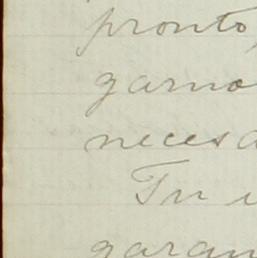 pronto,
garno
necesa
Tu i
garan